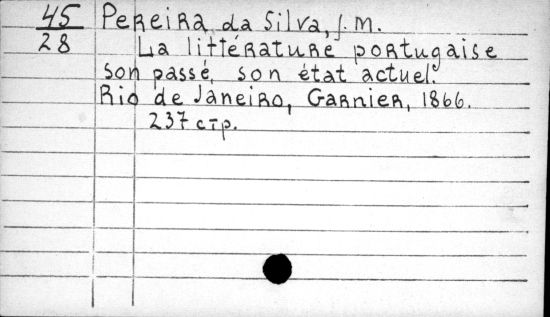 45 Pereira da Silva, J. M.
28 La littérature portugaise
son passé, son état actuel.
Rio de Janeiro, Garnier, 1866.
237 стр.